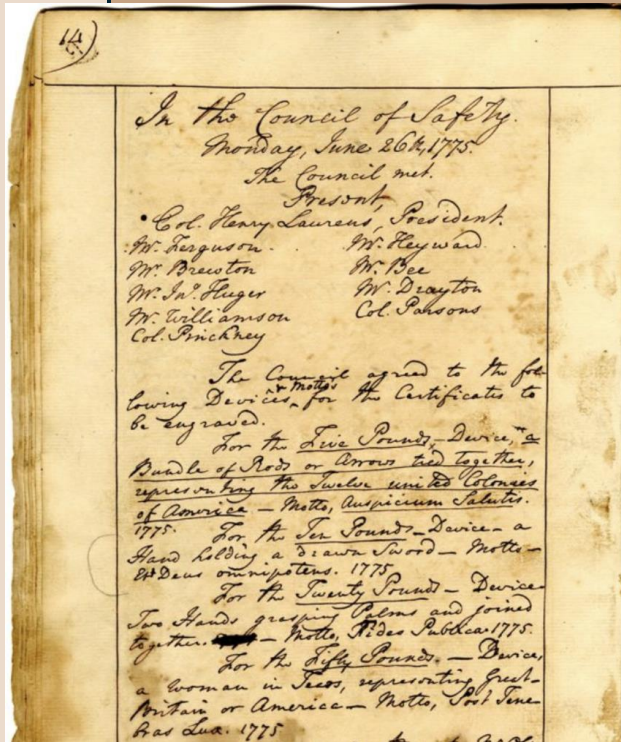 In the Council of Safety.
Monday, June 26th, 1775.
The Council met.
Present,
Col. Henry Laurens, President.
Mr. Ferguson. Mr. Heyward.
Mr. Brewton Mr. Bee
Mr. Jno. Huger Mr. Drayton
Mr. Williamson Col. Parsons
Col. Pinckney
The Council agreed to the fol-
lowing Devices & Mottos for the Certificates to
be engraved.
For the Five Pounds,—Device, "a
Bundle of Rods or Arrows tied together,
representing the Twelve united Colonies
of America — Motto, Auspicium Salutis.
1775. For the Ten Pounds — Device — a
Hand holding a drawn Sword — Motto —
Et Deus omnipotens. 1775
For the Twenty Pounds — Device
Two Hands grasping Palms and joined
together. — Motto, Fides Publica 1775.
For the Fifty Pounds. — Device,
a woman in Tears, representing Great-
Britain or America — Motto, Post Tene-
bras Lux. 1775